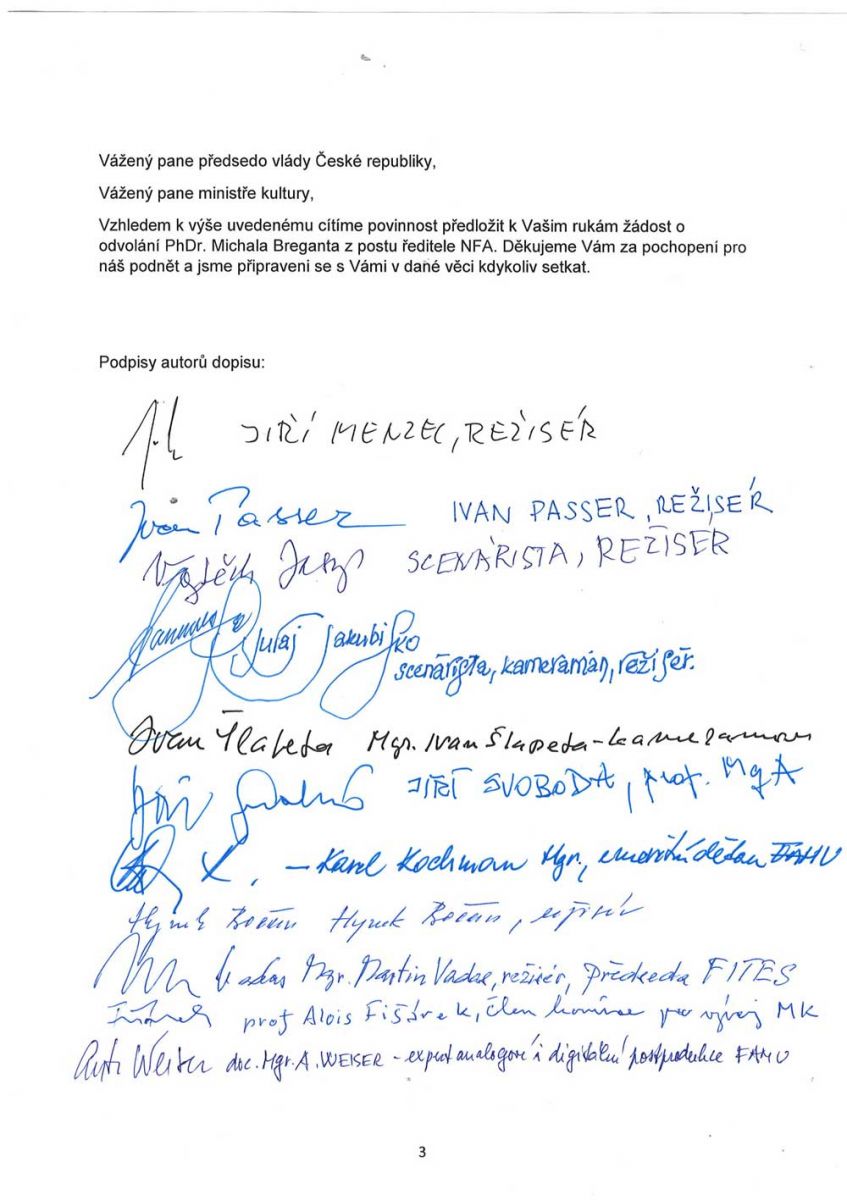 Vážený pane předsedo vlády České republiky,
Vážený pane ministře kultury,
Vzhledem k výše uvedenému cítíme povinnost předložit k Vašim rukám žádost o
odvolání PhDr. Michala Breganta z postu ředitele NFA. Děkujeme Vám za pochopení pro
náš podnět a jsme připraveni se s Vámi v dané věci kdykoliv setkat.
Podpisy autorů dopisu:
JIŘÍ MENZEL, REŽISÉR
Ivan Passer IVAN PASSER, REŽISÉR
Vojtěch Jasný SCENÁRISTA, REŽISÉR
Juraj Jakubisko
scenárista, kameraman, režisér.
Ivan Šlapeta Mgr. Ivan Šlapeta - kameraman
Jiří Svoboda JIŘÍ SVOBODA, prof. MgA
- Karel Kochman Mgr., emeritní děkan FAMU
Hynek Bočan Hynek Bočan, režisér
Vadas Mgr. Martin Vadas, režisér, předseda FITES
prof Alois Fišárek, člen komise pro vývoj MK
Weiser doc. Mgr. A. WEISER - expert analogové i digitální postprodukce FAMU
3